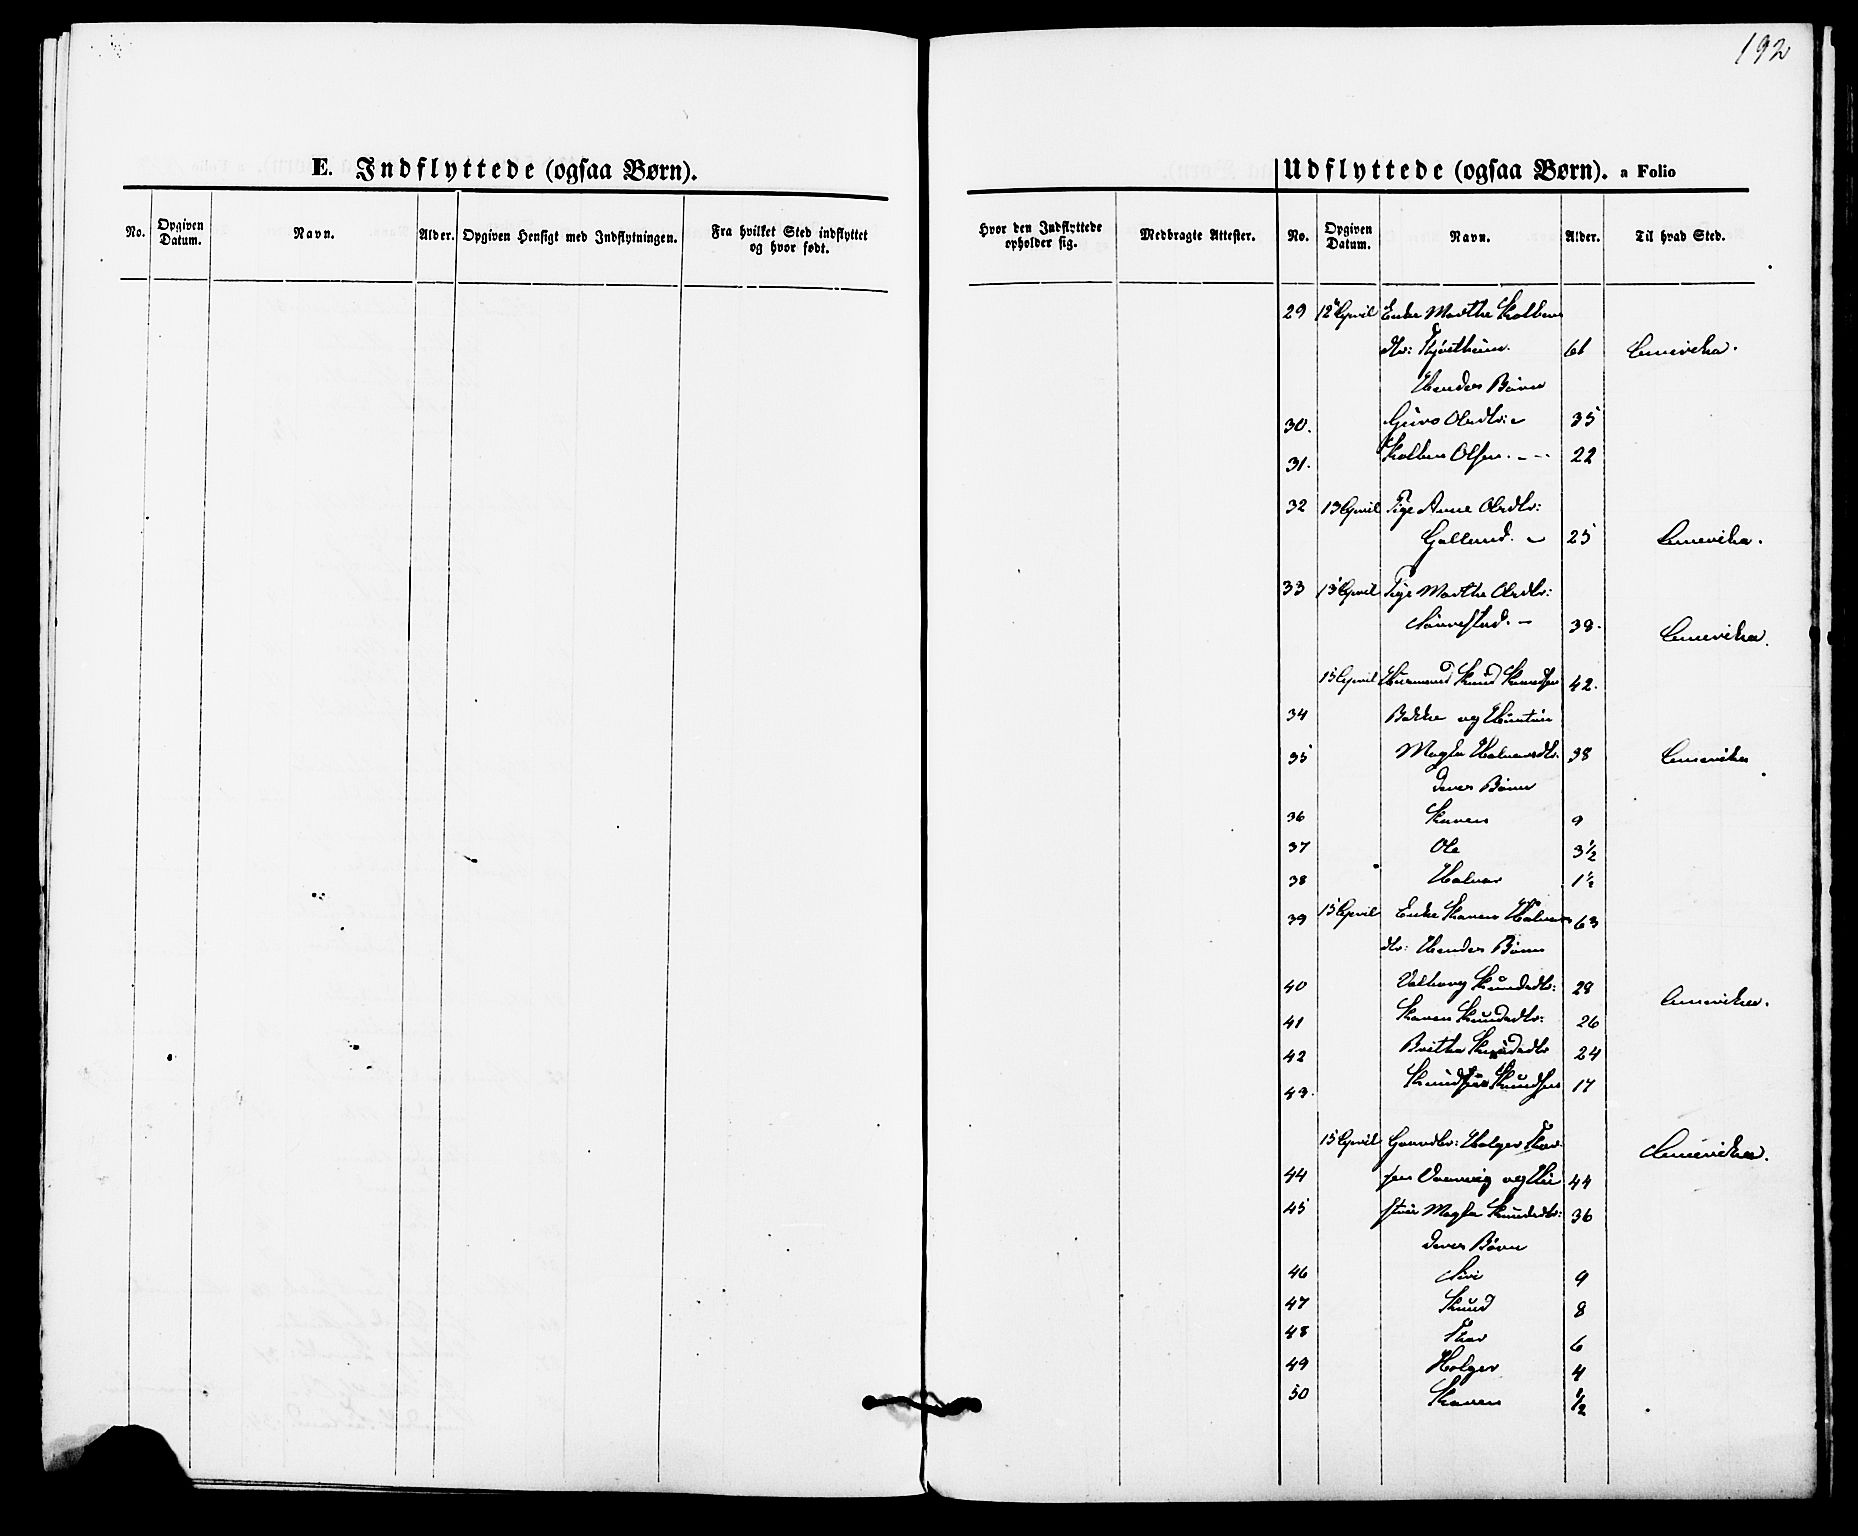 192
E. Indflyttede (ogsaa Børn).
No.
Opgiven Datum.
Navn.
Alder.
Opgiven Hensigt med Indflytningen.
Fra hvilket Sted indflyttet og hvor født.
Udflyttede (ogsaa Børn). a Folio
Hvor den Indflyttede opholder sig.
Medbragte Attester.
No.
Opgiven Datum.
Navn.
Alder.
Til hvad Sted.
29 12 April Enke Marthe
dtr: 61 Amerika.
Hendes Børn
30. Guro Olsdtr: 35
31. Olsen. 22
32 13 April Pige Anne Olsdtr:
25 Amerika.
33 13 April Pige Marthe Olsdtr:
38. Amerika.
15 April Huusmand Knud 42.
34 Bakke og Hustru
35 Magla Halvorsdtr. 38 Amerika
deres Børn
36 Karen 9
37 Ole 3½
38 Halvor 1½
39 15 April Enke Karen Halvors 63
dtr: Hendes Børn
40 Valborg Knudsdtr: 28 Amerika.
41 Karen Knudsdtr: 26
42 Britha Knudsdtr 24
43. Knudsen 17
15 April Holger Thor- Amerika.
44 sen og Hu 44
45 strue Magla Knudsdtr: 36
deres Børn
46 Siri 9
47 Knud 8
48 Thor 6
49 Holger 4
50 Karen ½